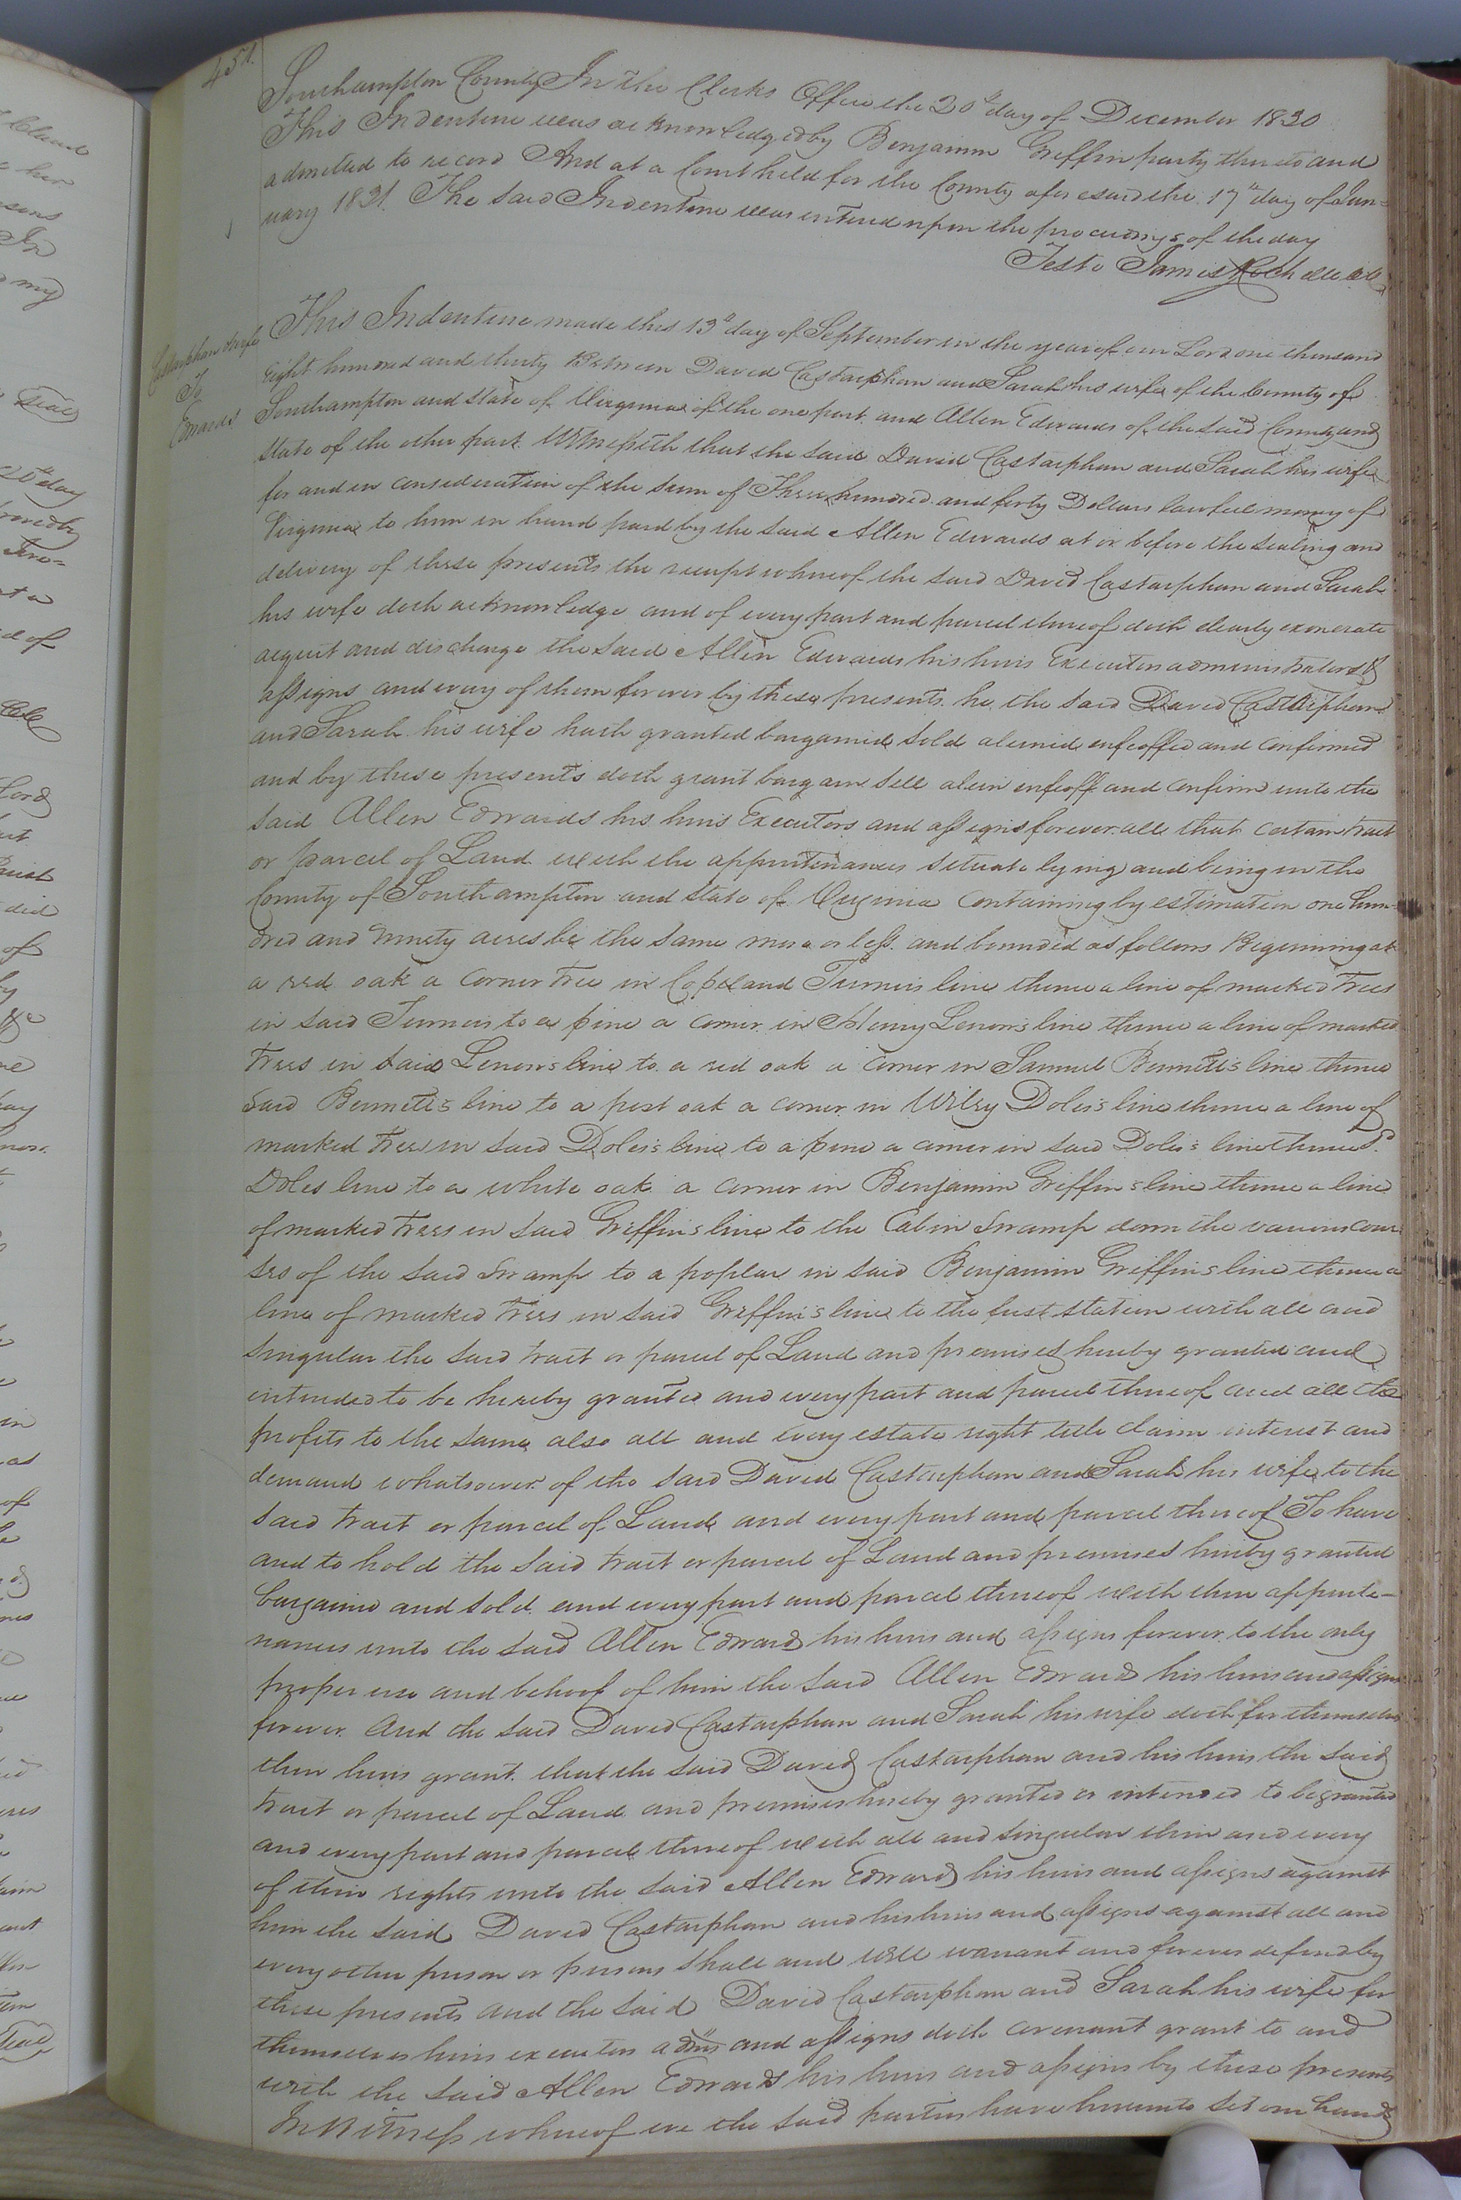 451.
Southampton County In the Clerks Office the 20th day of December 1830
This Indenture was acknowledged by Benjamin Griffin party thereto and
admitted to record And at a Court held for the County aforesaid the 17th day of Jan=
uary 1831. The said Indenture was entered upon the proceedings of the day
Teste James Rochelle Clk
Castarphan & wife
To
Edwards
This Indenture made this 13th day of September in the year of our Lord one thousand
eight hundred and thirty Between David Castarphan and Sarah his wife of the County of
Southampton and State of Virginia of the one part and Allen Edwards of the said County and
State of the other part Witnesseth that the said David Castarphan and Sarah his wife
for and in consideration of the sum of Three hundred and forty Dollars lawful money of
Virginia to him in hand paid by the said Allen Edwards at or before the sealing and
delivery of these presents the receipt whereof the said David Castarphan and Sarah
his wife doth acknowledge and of every part and parcel thereof doth clearly exonerate
acquit and discharge the said Allen Edwards his heirs Executors administrators &
assigns and every of them forever by these presents he the said David Castarphan
and Sarah his wife hath granted bargained sold aliened enfeoffed and confirmed
and by these presents doth grant bargain sell alien enfeoff and confirm unto the
said Allen Edwards his heirs Executors and assigns forever all that certain tract
or parcel of Land with the appurtenances situate lying and being in the
County of Southampton and State of Virginia containing by estimation one hun=
dred and ninety acres be the same more or less and bounded as follows Beginning at
a red oak a corner tree in Copeland Turners line thence a line of marked trees
in said Turners to a pine a corner in Henry Lenow's line thence a line of marked
trees in said Lenow's line to a red oak a corner in Samuel Bennett's line thence
said Bennett's line to a post oak a corner in Wiley Doles's line thence a line of
marked trees in said Doles's line to a pine a corner in said Doles's line thence sd
Doles line to a white oak a corner in Benjamin Griffin's line thence a line
of marked trees in said Griffin's line to the Cabin Swamp down the various cour
ses of the said Swamp to a poplar in said Benjamin Griffin's line thence a
line of marked trees in said Griffin's line to the first station with all and
singular the said tract or parcel of Land and premises hereby granted and
intended to be hereby granted and every part and parcel thereof and all the
profits to the same also all and every estate right title claim interest and
demand whatsoever of the said David Castarphan and Sarah his wife to the
said tract or parcel of Land and every part and parcel thereof To have
and to hold the said tract or parcel of Land and premises hereby granted
bargained and sold and every part and parcel thereof with their appurte-
nances unto the said Allen Edwards his heirs and assigns forever to the only
proper use and behoof of him the said Allen Edwards his heirs and assigns
forever. And the said David Castarphan and Sarah his wife doth for themselves
their heirs grant that the said David Castarphan and his heirs the said
tract or parcel of Land and premises hereby granted or intended to be granted
and every part and parcel thereof with all and singular their and every
of their rights unto the said Allen Edwards his heirs and assigns against
him the said David Castarphan and his heirs and assigns against all and
every other person or persons shall and will warrant and forever defend by
these presents and the said David Castarphan and Sarah his wife for
themselves heirs executors admrs and assigns doth covenant grant to and
with the said Allen Edwards his heirs and assigns by these presents
In Witness whereof we the said parties have hereunto set our hands